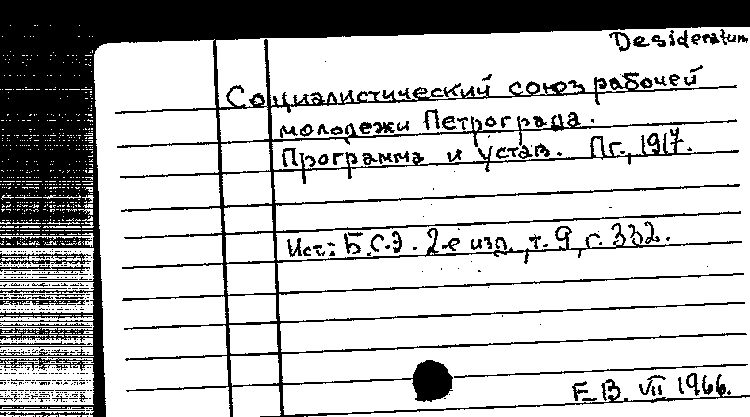 Desideratum
Социалистический союз рабочей
молодежи Петрограда.
Программа и устав. Пг., 1917.
Ист: Б.С.Э. 2-е изд., т. 9, с. 332.
E.B. VII 1966.